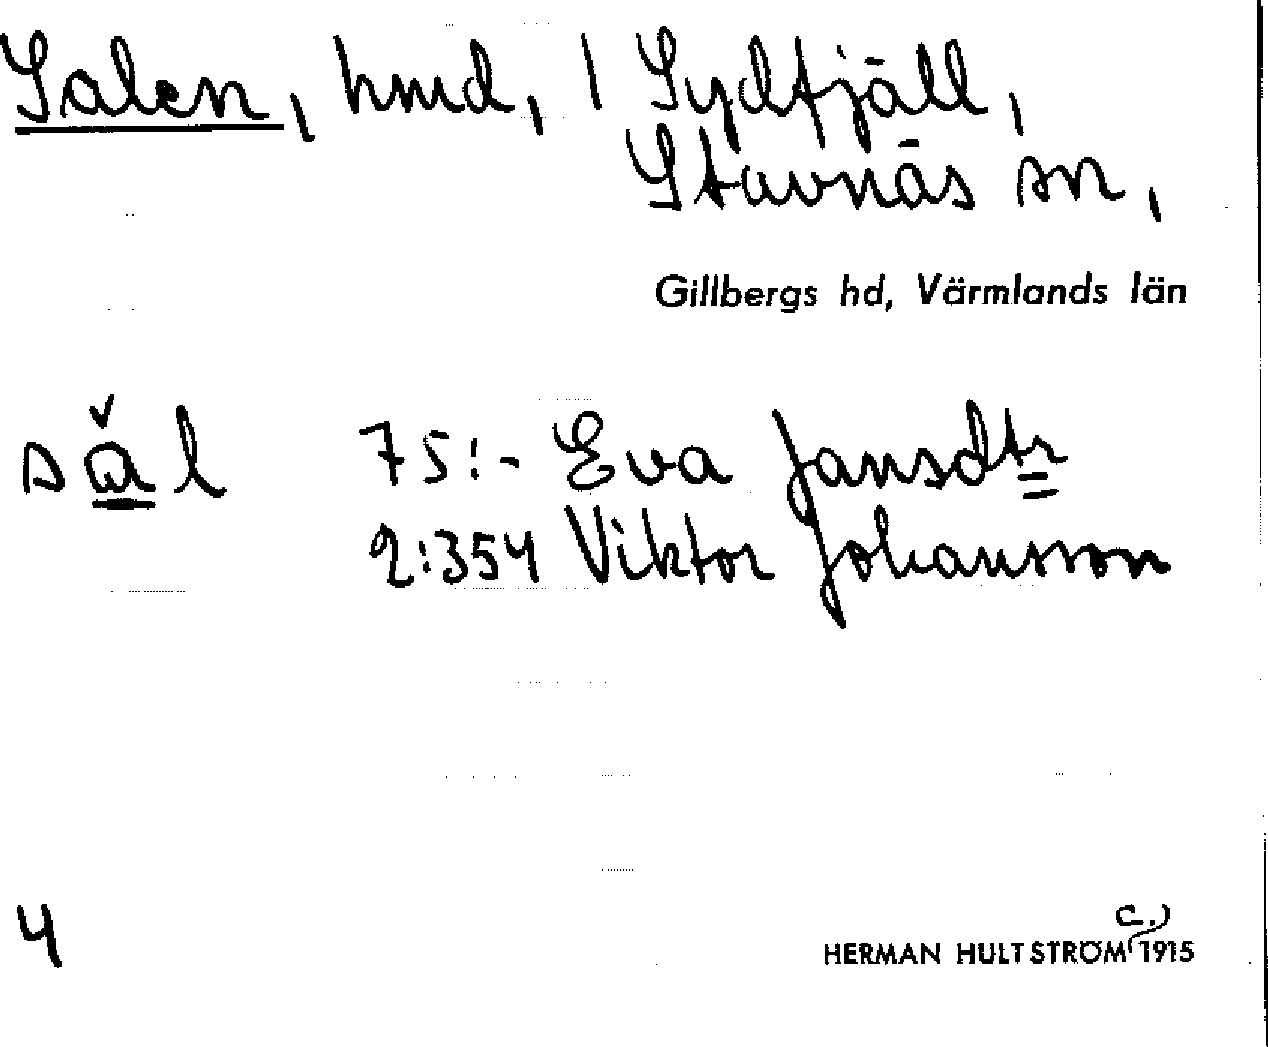 Salen, hmd, i Sydfjäll,
Stavnäs sn,
Gillbergs hd, Värmlands län
sǎl 75:- Eva Jansdtr
2:354 Viktor Johansson
4
c.)
HERMAN HULTSTRÖM 1915